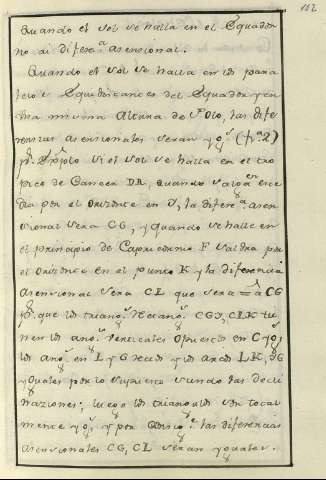 102
Quando el Sol se halla en el Equador
no ai difere.ª asensional.
Quando el Sol se halla en los para
lelos Equidistantes del Equador y en
una misma Altura de Polo, las dife
rencias asensionales seran yg.s (fig.ª 2)
p.r Exemplo si el Sol se halla en el tro
pico de Cancer DR, quando salga en este
dia por el Orizonte en I, la difere.ª asen
sional sera CG, y quando se halle en
el principio de Capricornio F saldra por
el Orizonte en el punto K y la diferencia
asensional sera CL que sera = a CG
p.r que los triang.s Rectang.s CGI, CLK tie
nen los ang.s verticales opuestos en C yg.s
los ang.s en L y G rectos y los arcos LK, IG
yguales por lo supuesto siendo las decli
naciones; luego los triangulos son total
mente yg.s y por consig.te las diferencias
asensionales CG, CL seran yguales.